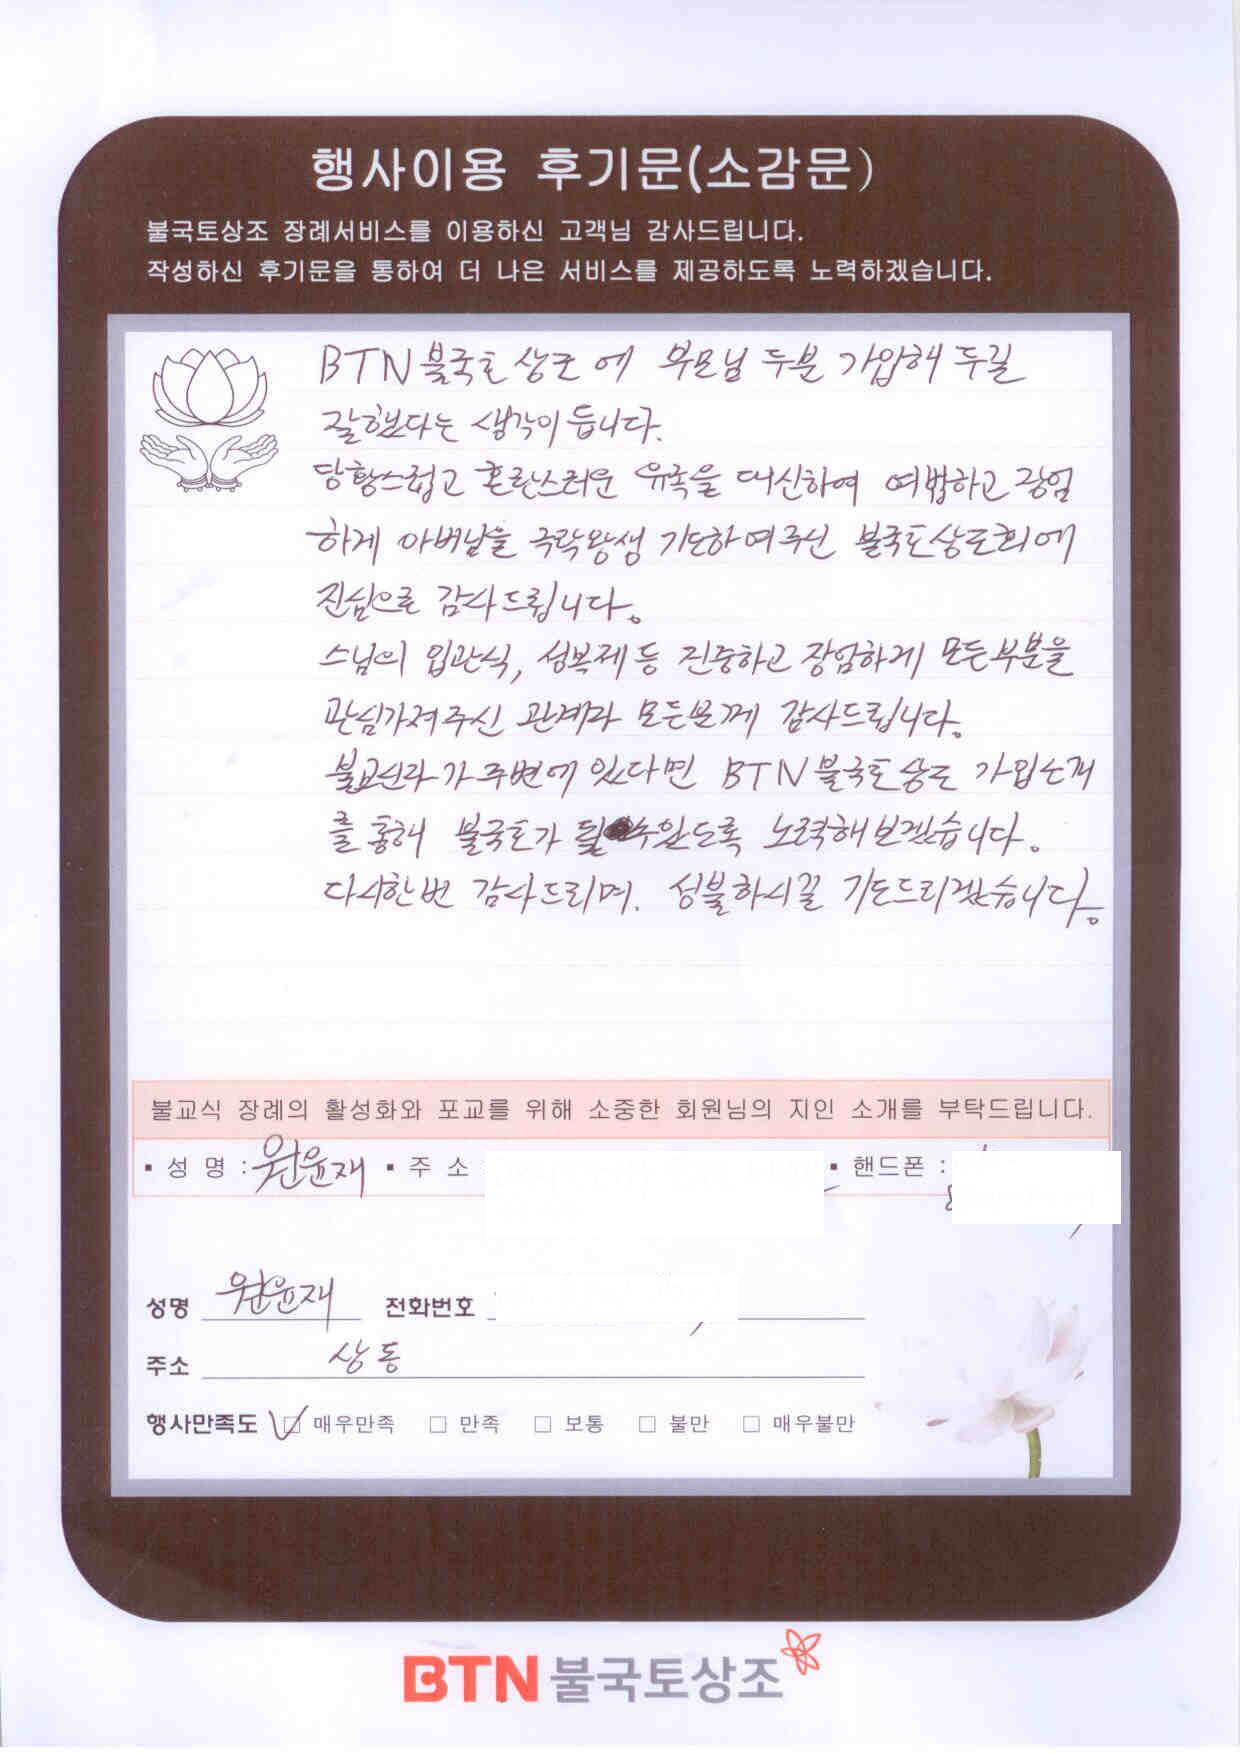 행사이용 후기문(소감문)
불국토상조 장례서비스를 이용하신 고객님 감사드립니다.
작성하신 후기문을 통하여 더 나은 서비스를 제공하도록 노력하겠습니다.
BTN불국토 상조에 부모님 두분 가입해 두길
잘했다는 생각이 듭니다.
당황스럽고 혼란스러운 유족을 대신하여 여법하고 장엄
하게 아버님을 극락왕생 기도하여주신 불국토상조회에
진심으로 감사드립니다.
스님의 입관식, 성복제 등 진중하고 장엄하게 모든부분을
관심가져주신 관계자 모든분께 감사드립니다.
불교신자가 주변에 있다면 BTN불국토상조 가입소개
를 통해 불국토가 될 수있도록 노력해보겠습니다.
다시한번 감사드리며, 성불하시길 기도드리겠습니다.
불교식 장례의 활성화와 포교를 위해 소중한 회원님의 지인 소개를 부탁드립니다.
▪ 성 명 : 원윤재 ▪ 주 소 ▪ 핸드폰 :
성명 원윤재 전화번호
주소 상동
행사만족도 ☑ 매우만족 □ 만족 □ 보통 □ 불만 □ 매우불만
BTN 불국토상조